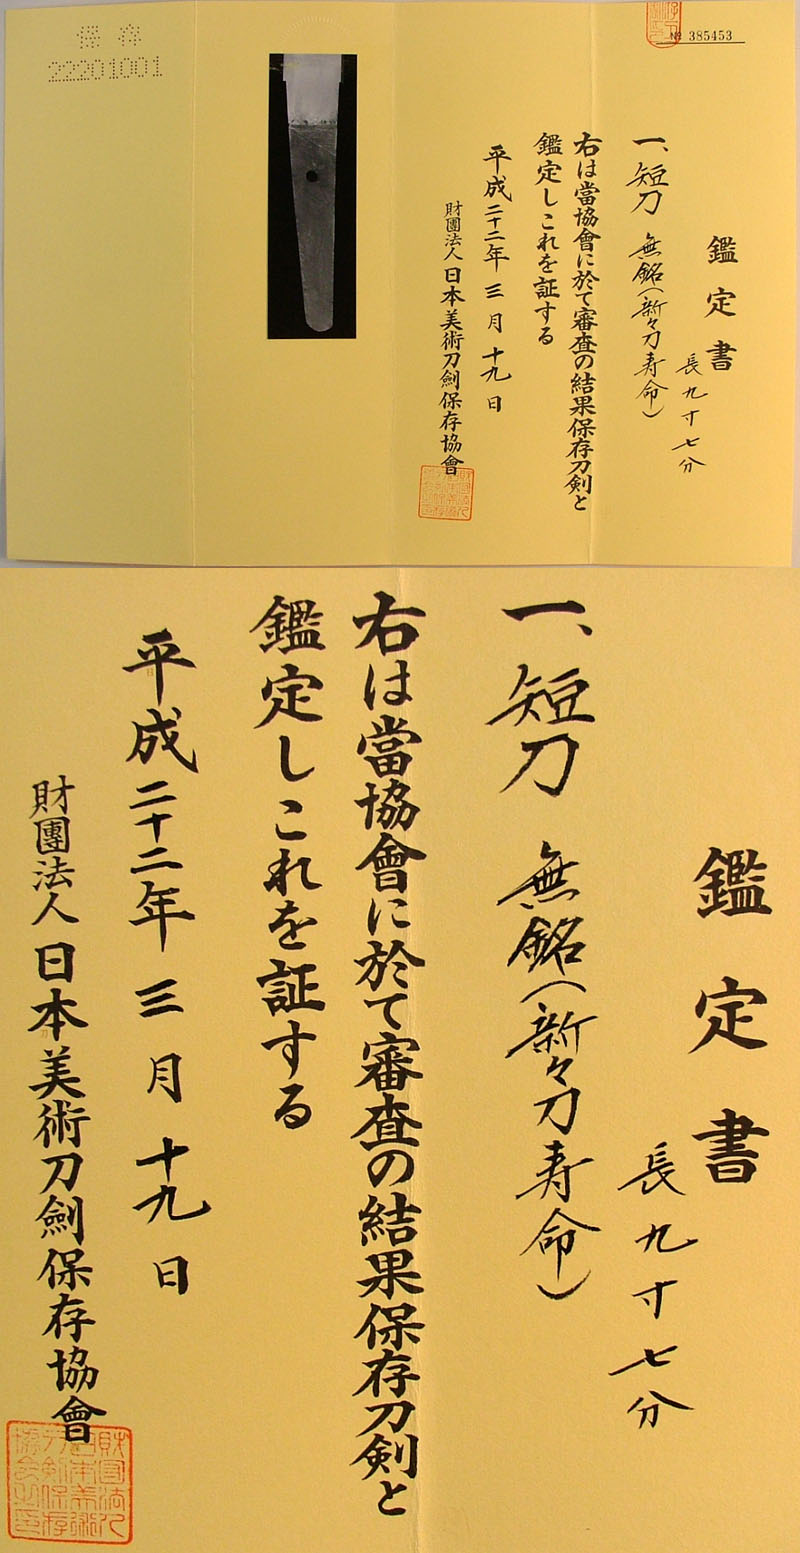 保存
22201001
№ 385453
鑑定書
長九寸七分
一、短刀 無銘(新々刀寿命)
右は當協會に於て審査の結果保存刀剣と
鑑定しこれを証する
平成二十二年三月十九日
財團法人日本美術刀劍保存協會
鑑定書
長九寸七分
一、短刀 無銘(新々刀寿命)
右は當協會に於て審査の結果保存刀剣と
鑑定しこれを証する
平成二十二年三月十九日
財團法人日本美術刀劍保存協會